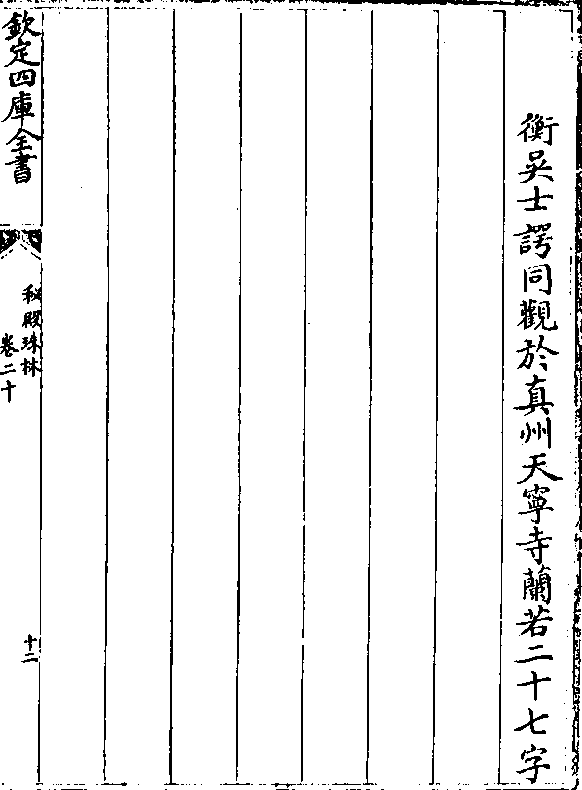 衡吳士諤同觀於真州天寧寺蘭若二十七字
欽定四庫全書
秘殿珠林
卷二十
十二